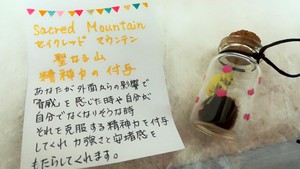 Sacred Mountain
セイクレッド マウンテン
聖なる山
精神力の付与
あなたが外面からの影響で
「脅威」を感じた時や自分が
自分でなくなりそうな時
それを克服する精神力を付与
してくれ 力強さと安堵感を
もたらしてくれます。